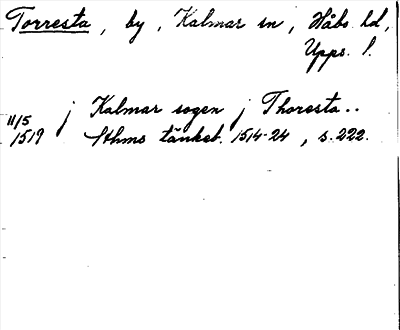 Torresta, by, Kalmar sn, Håbo hd,
Upps. l.
11/5 j Kalmar sogen j Thoresta..
1519 Sthms tänkeb. 1514-24, s. 222.